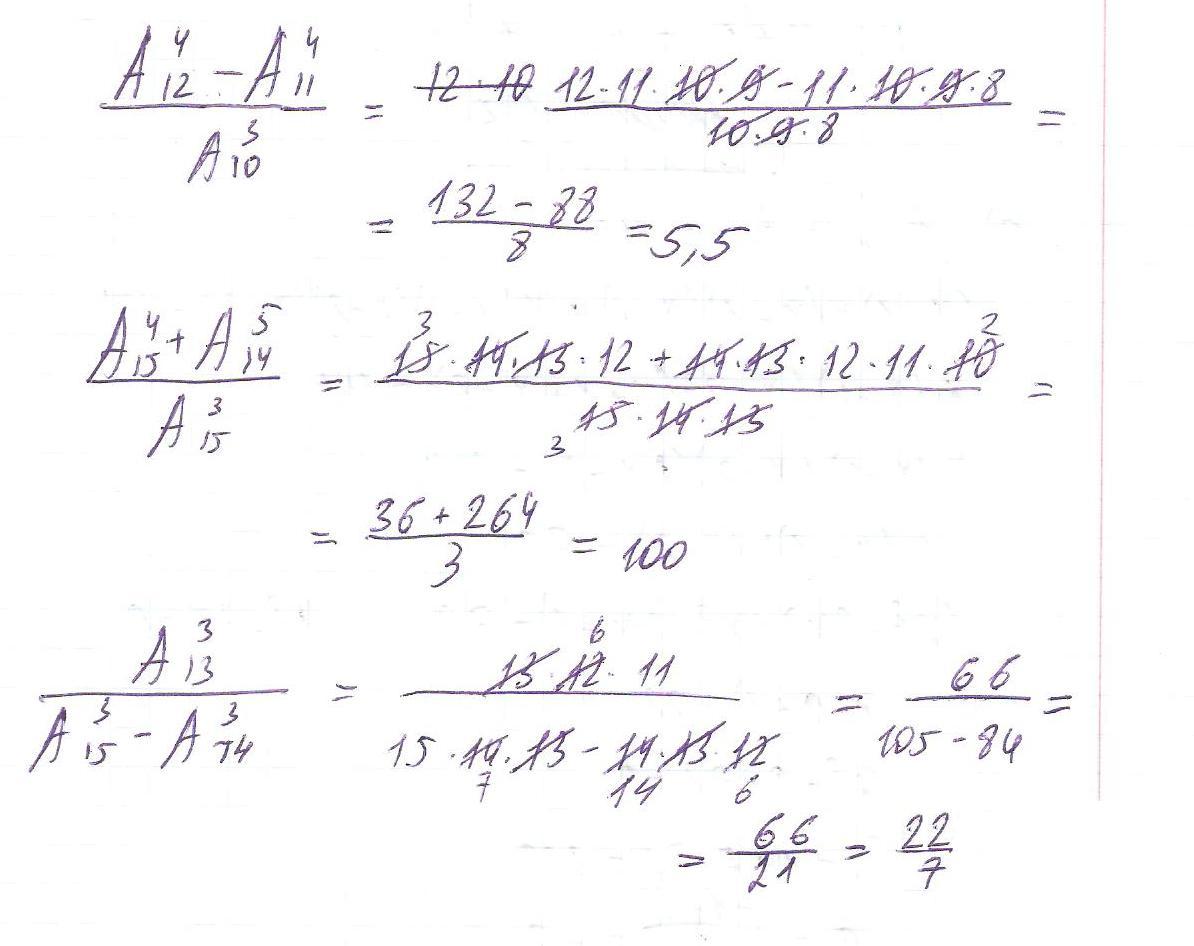 (A₁₂⁴ − A₁₁⁴) / A₁₀³ = 12 · 10 (12 · 11 · 10 · 9 − 11 · 10 · 9 · 8) / (10 · 9 · 8) =
= (132 − 88) / 8 = 5,5
(A₁₅⁴ + A₁₄⁵) / A₁₅³ = (15 3 · 14 · 13 · 12 + 14 · 13 · 12 · 11 · 10 2) / (15 3 · 14 · 13) =
= (36 + 264) / 3 = 100
A₁₃³ / (A₁₅³ − A₁₄³) = (13 · 12 6 · 11) / (15 · 14 7 · 13 − 14 14 · 13 · 12 6) = 66 / (105 − 84) =
= 66 / 21 = 22 / 7